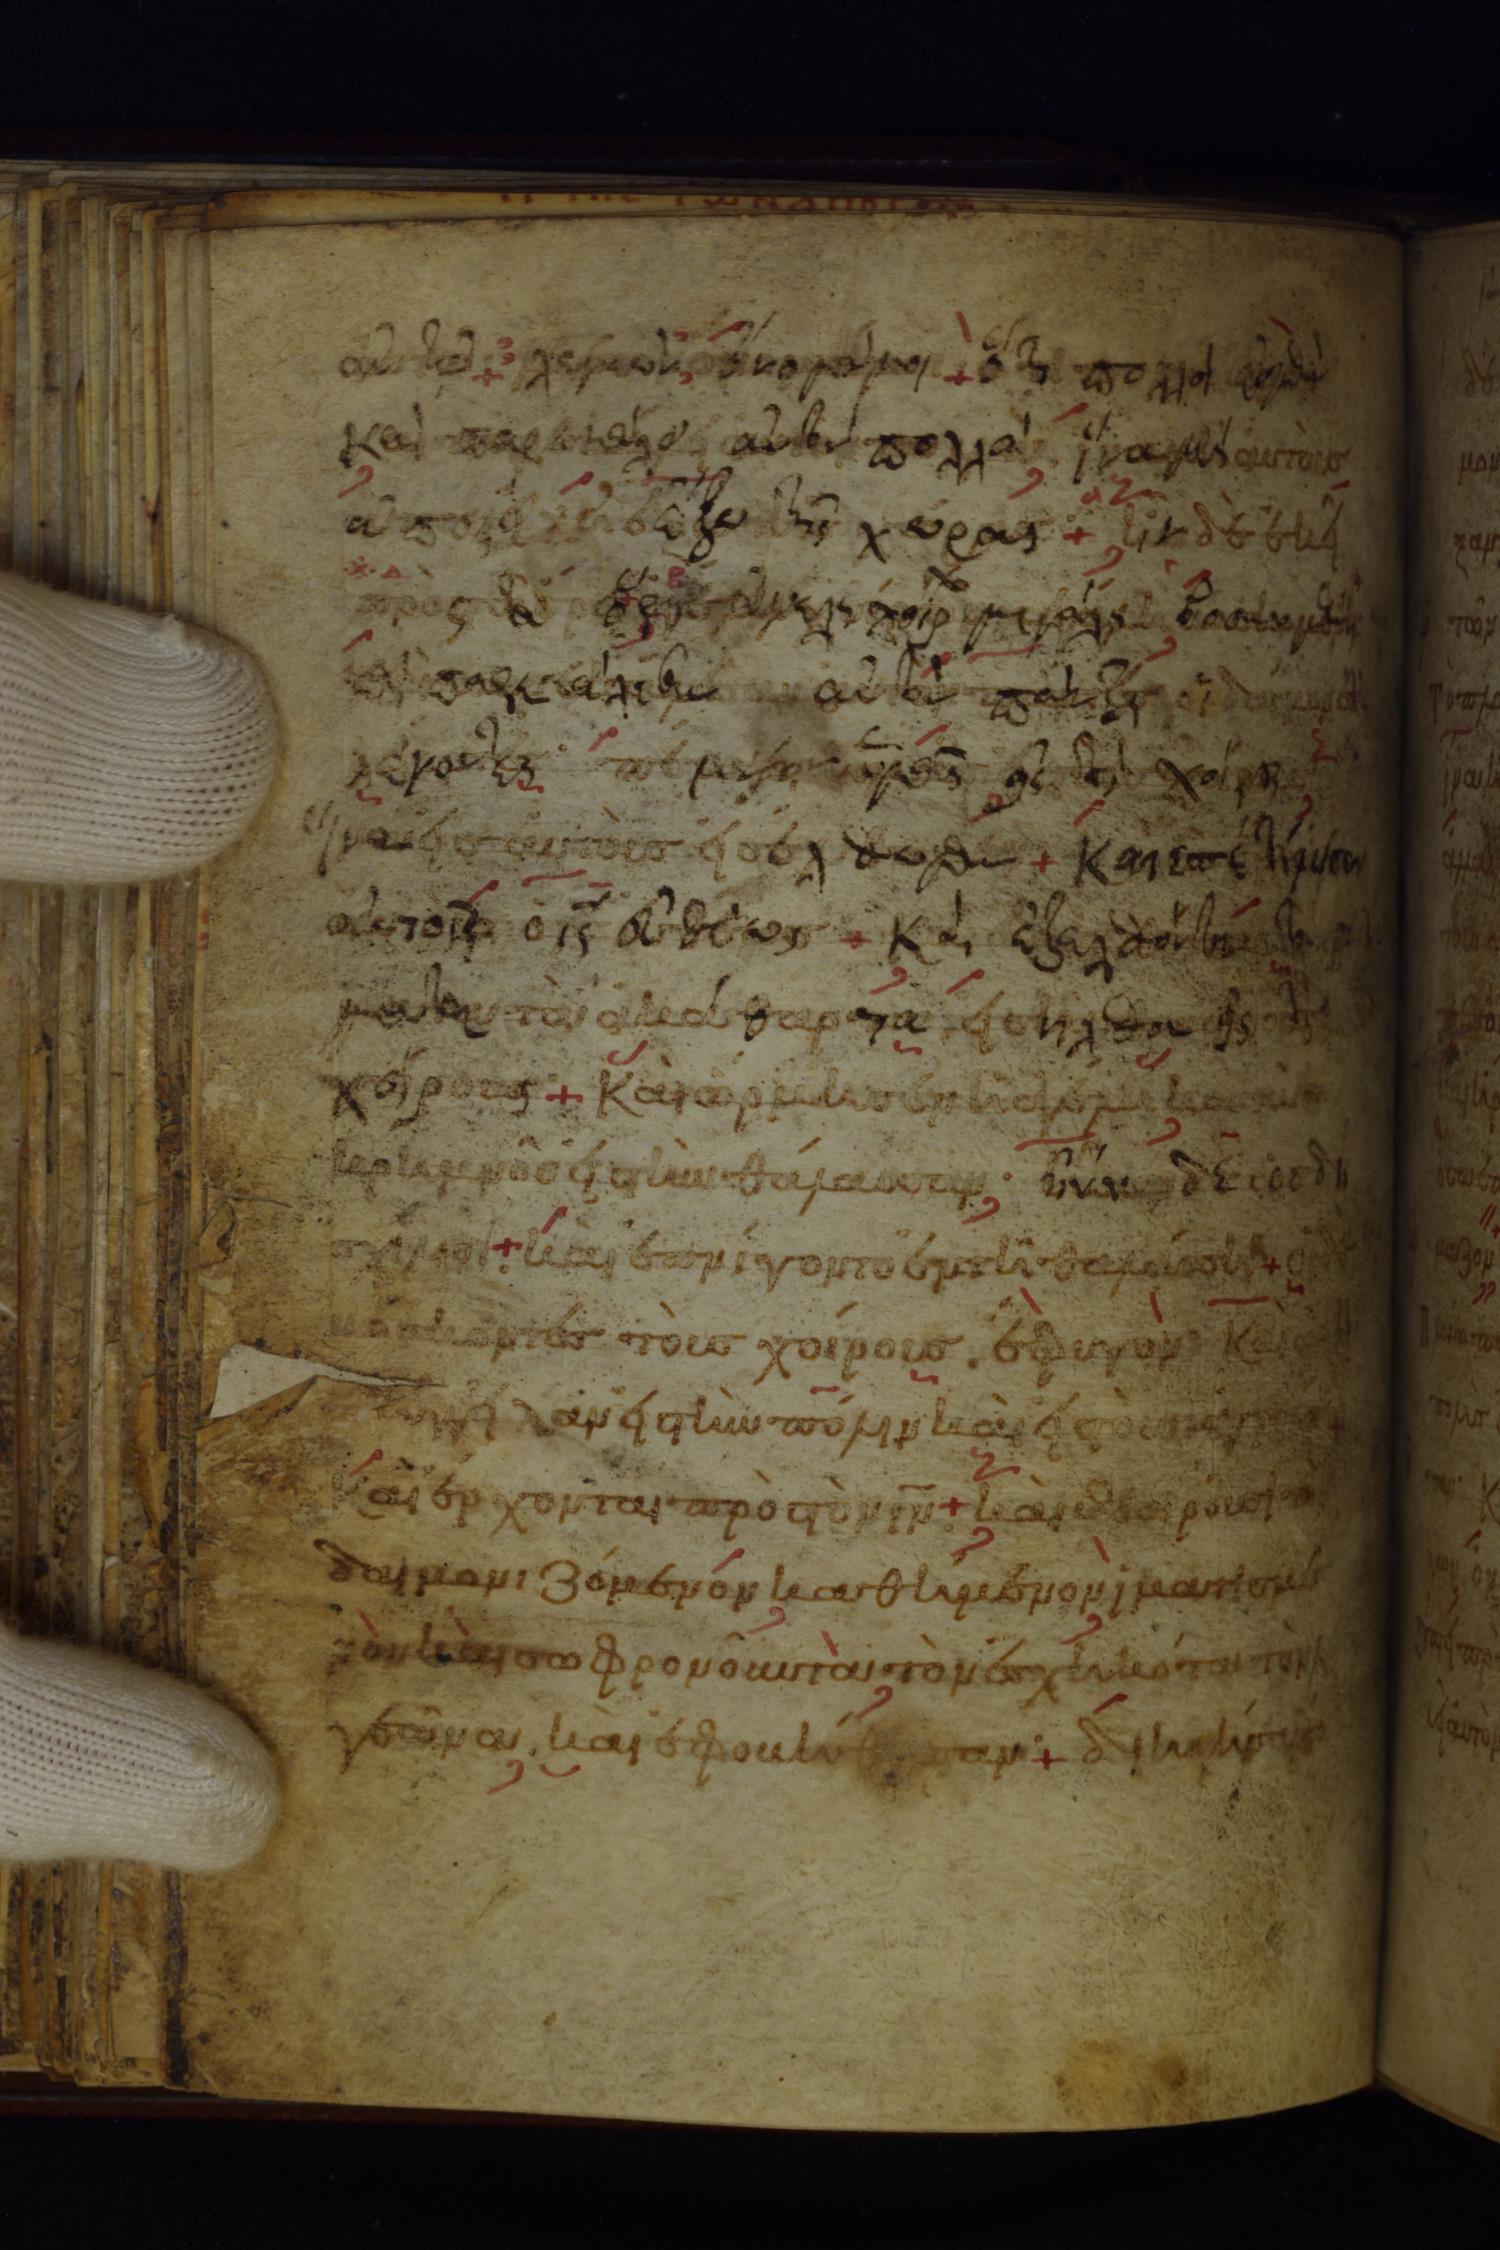 αὐτῶ + λεγεὼν ὄνομά μοι + ὅτι πολλοί ἐσμεν
καὶ παρεκάλει αὐτὸν πολλὰ ἵνα μὴ αὐτοὺς
ἀποστείλη ἔξω τῆς χώρας + ἦν δὲ ἐκεῖ
πρὸς τῶ ὄρει ἀγέλη χοίρων μεγάλη βοσκομένη
καὶ παρεκάλεσαν αὐτὸν πάντες οἱ δαίμονες
λέγοντες πέμψον ἡμᾶς εἰς τοὺς χοίρους
ἵνα εἰς αὐτοὺς εἰσέλθωμεν + Καὶ ἐπέτρεψεν
αὐτοῖς ὁ ις εὐθέως + Καὶ ἐξελθόντα τὰ
πνευματα τὰ ἀκάθαρτα εἰσῆλθον εἰς τοὺς
χοίρους + Καὶ ὥρμησεν ἡ ἀγέλη κατὰ τοῦ
κρημνοῦ εἰς τὴν θάλασσαν. ἦσαν δὲ ὡς δι
σχίλιοι + καὶ ἐπνίγοντο ἐν τῆ θαλάσση + οἱ δὲ
βόσκοντες τοὺς χοίρους. ἔφυγον Καὶ
ἀνήγγειλαν εἰς τὴν πόλιν καὶ εἰς τοὺς ἀγρούς +
Καὶ ἔρχονται πρὸς τὸν ιν + καὶ θεωροῦσι τὸν
δαιμονιζόμενον καθήμενον ἱματισμέ
νον καὶ σωφρονοῦντα τὸν ἐσχηκότα τὸν
λεγεῶνα. καὶ ἐφοβήθησαν +